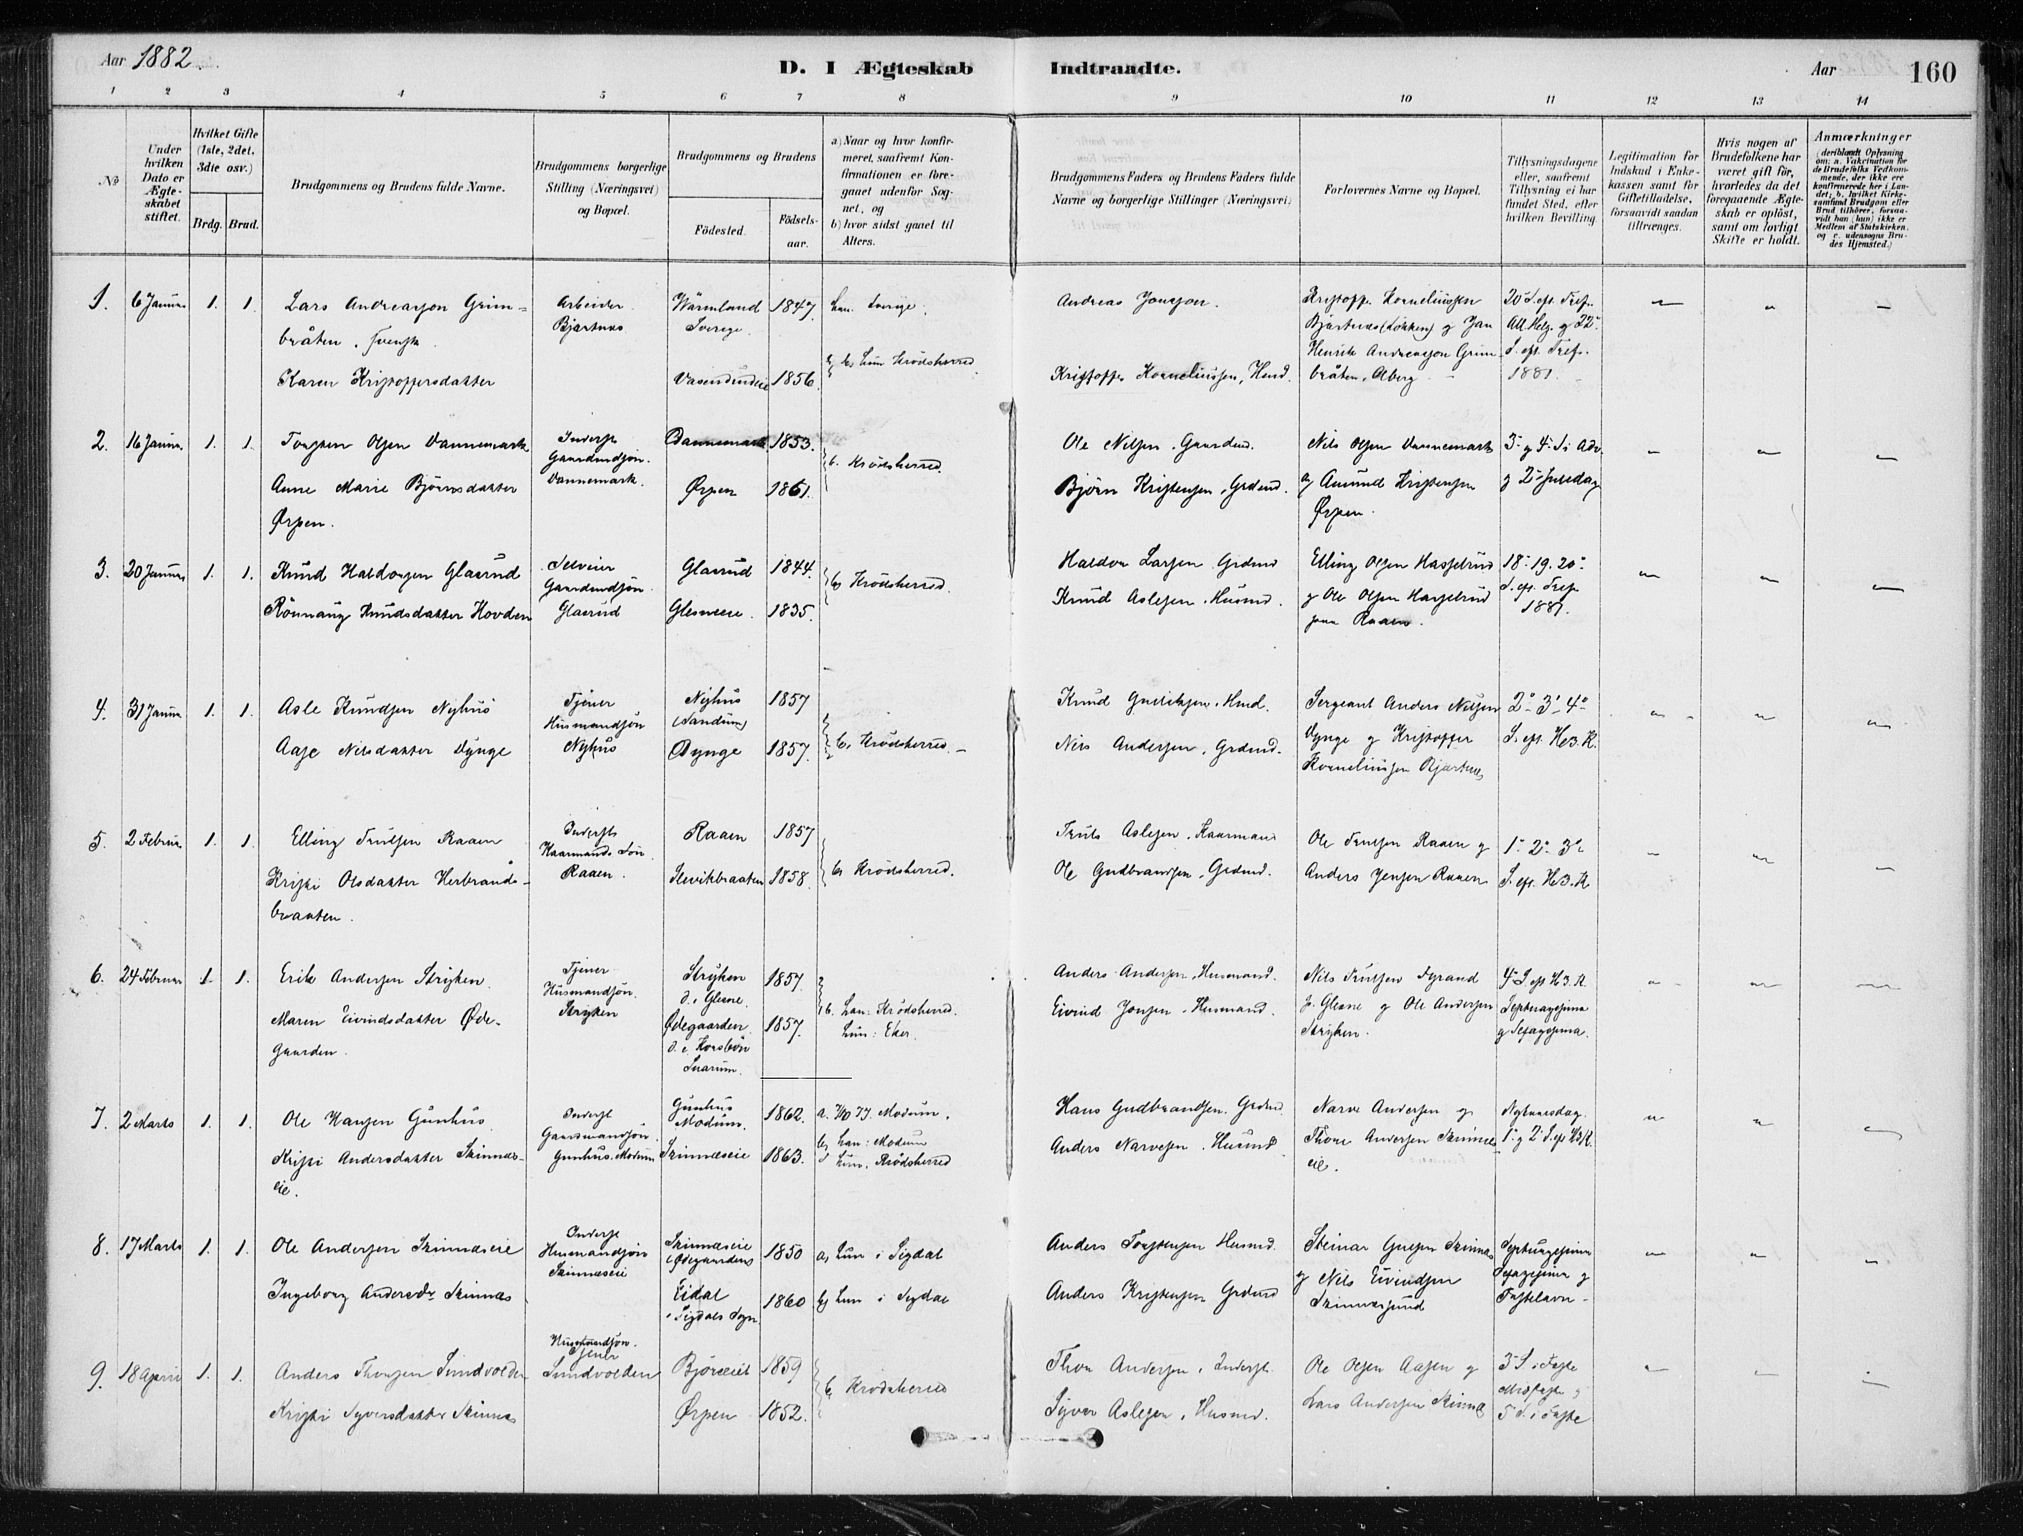 Aar 1882.
D. I Ægteskab Indtraadte.
Aar 160
1 2 3 4 5 6 7 8 9 10 11 12 13 14
No
Under hvilken Dato er Ægteskabet stiftet.
Hvilket Gifte (1ste, 2det, 3die osv.)
Brdg. Brud.
Brudgommens og Brudens fulde Navne.
Brudgommens borgerlige Stilling (Næringsvei) og Bopæl.
Brudgommens og Brudens
Fødested.
Fødselsaar.
a) Naar og hvor konfirmeret, saafremt Konfirmationen er foregaaet udenfor Sognet, og
b) hvor sidst gaaet til Alters.
Brudgommens Faders og Brudens Faders fulde Navne og borgerlige Stillinger (Næringsvei)
Forlovernes Navne og Bopæl.
Tillysningsdagene eller, saafremt Tillysning ei har fundet Sted, efter hvilken Bevilling.
Legitimation for Indskud i Enkekassen samt for Giftetilladelse, forsaavidt saadan tiltrænges.
Hvis nogen af Brudefolkene har været gift før, hvorledes da det foregaaende Ægteskab er opløst, samt om lovligt Skifte er holdt.
Anmærkninger
(deriblandt Oplysning om: a. Vakcination for de Brudefolks Vedkommende, der ikke ere konfirmerede her i Landet; b. hvilket Kirkesamfund Brudgom eller Brud tilhører, forsaavidt han (hun) ikke er Medlem af Statskirken, og c. udensogns Brudes Hjemsted.)
1. 6 Januar 1. 1. Lars Andreassøn Grimbråten. svensk
Arbeider Bjørtnes
Wärmland Sverige 1847 han. Sverige.
Andreas Jonsson.
Kristoff. Korneliussen Bjørtnes (Løkken) og Jan Henrik Andreassøn Grimbråten, Alberg
20 S. eft. Tref. All. Helg. og 22 S. eft. Tref. 1881.
Karen Kristoffersdatter
1856 hun Krødsherred
Kristoffer Korneliussen, Husd.
2. 16 Januar 1. 1. Torsten Olsen Dannemark
Inderst Gaardmdsøn. Dannemark.
Dannemark 1853.
b. Krødsherred.
Ole Nilsen. Gaardmd.
Nils Olsen Dannemark og Amund Kristensen Ørpen.
3 og 4 S i Adv. og 2 Juledag
Anne Marie Bjørnsdatter Ørpen.
Ørpen 1861.
Bjørn Kristensen. Grdmd.
3. 20 Januar 1. 1. Knud Haldorsen Glasrud
Selveier Gaardmdsøn. Glasrud
Glasrud 1844.
b, Krødsherred.
Haldor Larsen Grdmd
Elling Olsen Hasselrud og Ole Olsen Hasselrud paa Raaen.
18. 19. 20 S. eft. Tref. 1881.
Rønnaug Knudsdatter Hovden
Glesneeie. 1835.
Knud Aslesen. Husmd.
4. 31 Januar 1. 1. Asle Knudsen Nyhus
Tjener Husmandsøn Nyhus
Nyhus (Sandum) 1857
b, Krødsherred.
Knud Gulliksen. Husd.
Sergeant Anders Nilsen Dynge og Kristoffer Korneliussen Bjørtnes
2. 3. 4 S. eft. H 3. K.
Aase Nilsdatter Dynge
Dynge 1857.
Nils Andersen, Grdmd.
5. 2 Februar 1. 1. Elling Trulsen Raaen
Inderst Kaarmands Søn. Raaen.
Raaen 1857
b, Krødsherred.
Truls Aslesen. Kaarmand
Ole Trulsen Raaen og Anders Jensen Raaen
1. 2. 3 S. eft. H 3. K
Kristi Olsdatter Herbrandsbraaten.
1858.
Ole Gudbrandsen. Grdmd.
6. 24 Februar 1. 1. Erik Andersen Stryken.
Tjener Husmandsøn. Stryken
Stryken d. i. Glesne. 1857.
b. han: Krødsherred. hun: Eker.
Anders Andersen, Husmand.
Nils Trulsen Fyrand p. Glesne og Ole Andersen Stryken.
4 S. eft H 3. K. Septuagesima og Sexagesima.
Maren Eivindsdatter Ødegaarden.
Ødegaarden. d. e. Snarum. 1857.
Eivind Jonsen. Husmand.
7. 2 Marts 1. 1. Ole Hansen Gunhus
Inderst Gaardmandsøn Gunhus. Modum
Gunhus Modum. 1862.
a. Modum.
Hans Gudbrandsen. Grdmd.
Narve Andersen og Thore Andersen Skinneseie.
Nytaarsdag. 1. og 2 S. eft H 3 K.
Kristi Andersdatter Skinneseie.
Skinneseie 1863.
b, han: Modum hun. Krødsherred
Anders Narvesen. Husmd
8. 17 Marts 1. 1. Ole Andersen Skinneseie
Inderst Husmandsøn Skinneseie
Skinneseie (Ødegaarden) 1850
a, hun i Sigdal
Anders Torstensen Husmd.
Steinar Skinnes og Nils Eivindsen
Septuagesima Sexagesima og Fastelavn
Ingeborg Andersdr Skinnes
Eidal i Sigdals Sogn 1860
b, hun i Sigdal
Anders Kristensen Grdmd
9. 18 April 1. 1. Anders Thorsen Sundvolden
Husmandsøn. Tjener Sundvolden
1859
b, Krødsherred
Thore Andersen. Inderst.
Ole Olsen Aasen og Lars Andersen Skinnes
3 S. i Faste Midfaste og 5 S. i Faste
Kristi Syversdatter Skinnes
Ørpen 1852.
Syver Aslesen. Husmd.